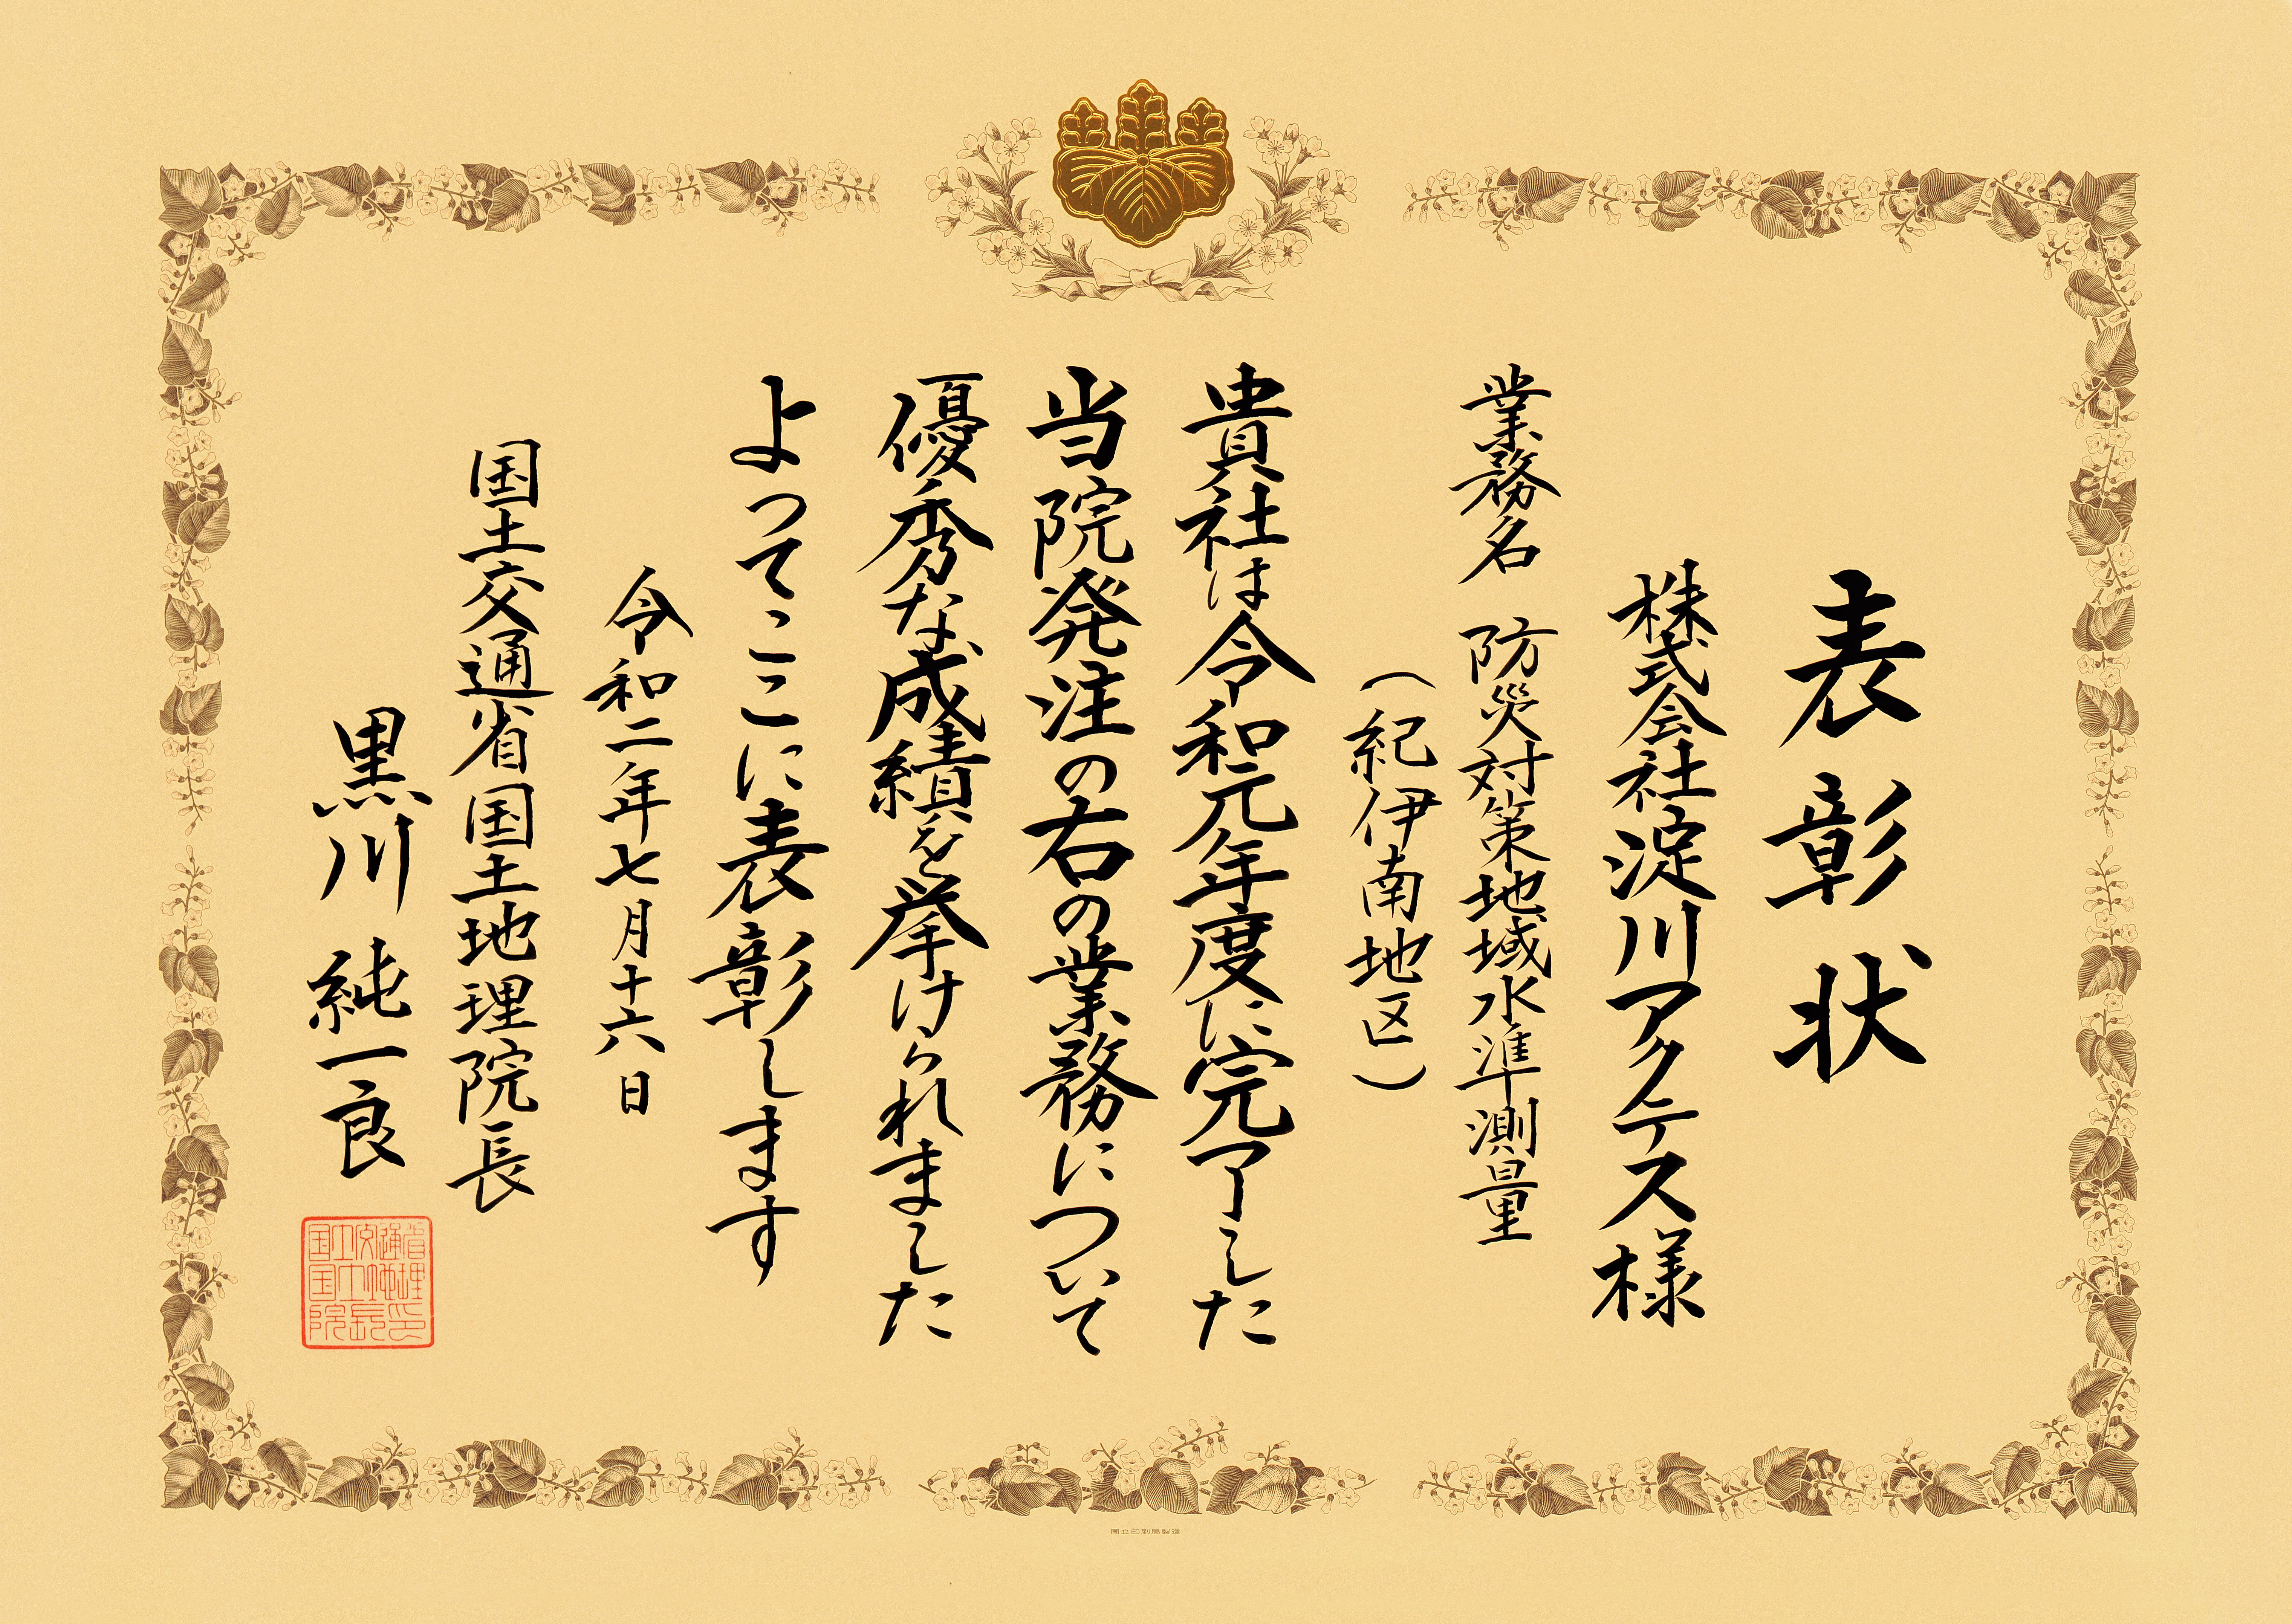 表彰状
株式会社淀川アクテス様
業務名 防災対策地域水準測量
(紀伊南地区)
貴社は令和元年度に完了した
当院発注の右の業務について
優秀な成績を挙げられました
よってここに表彰します
令和二年七月十六日
国土交通省国土地理院長
黒川純一良
国土交通省
国土地理
院長印
国立印刷局製造